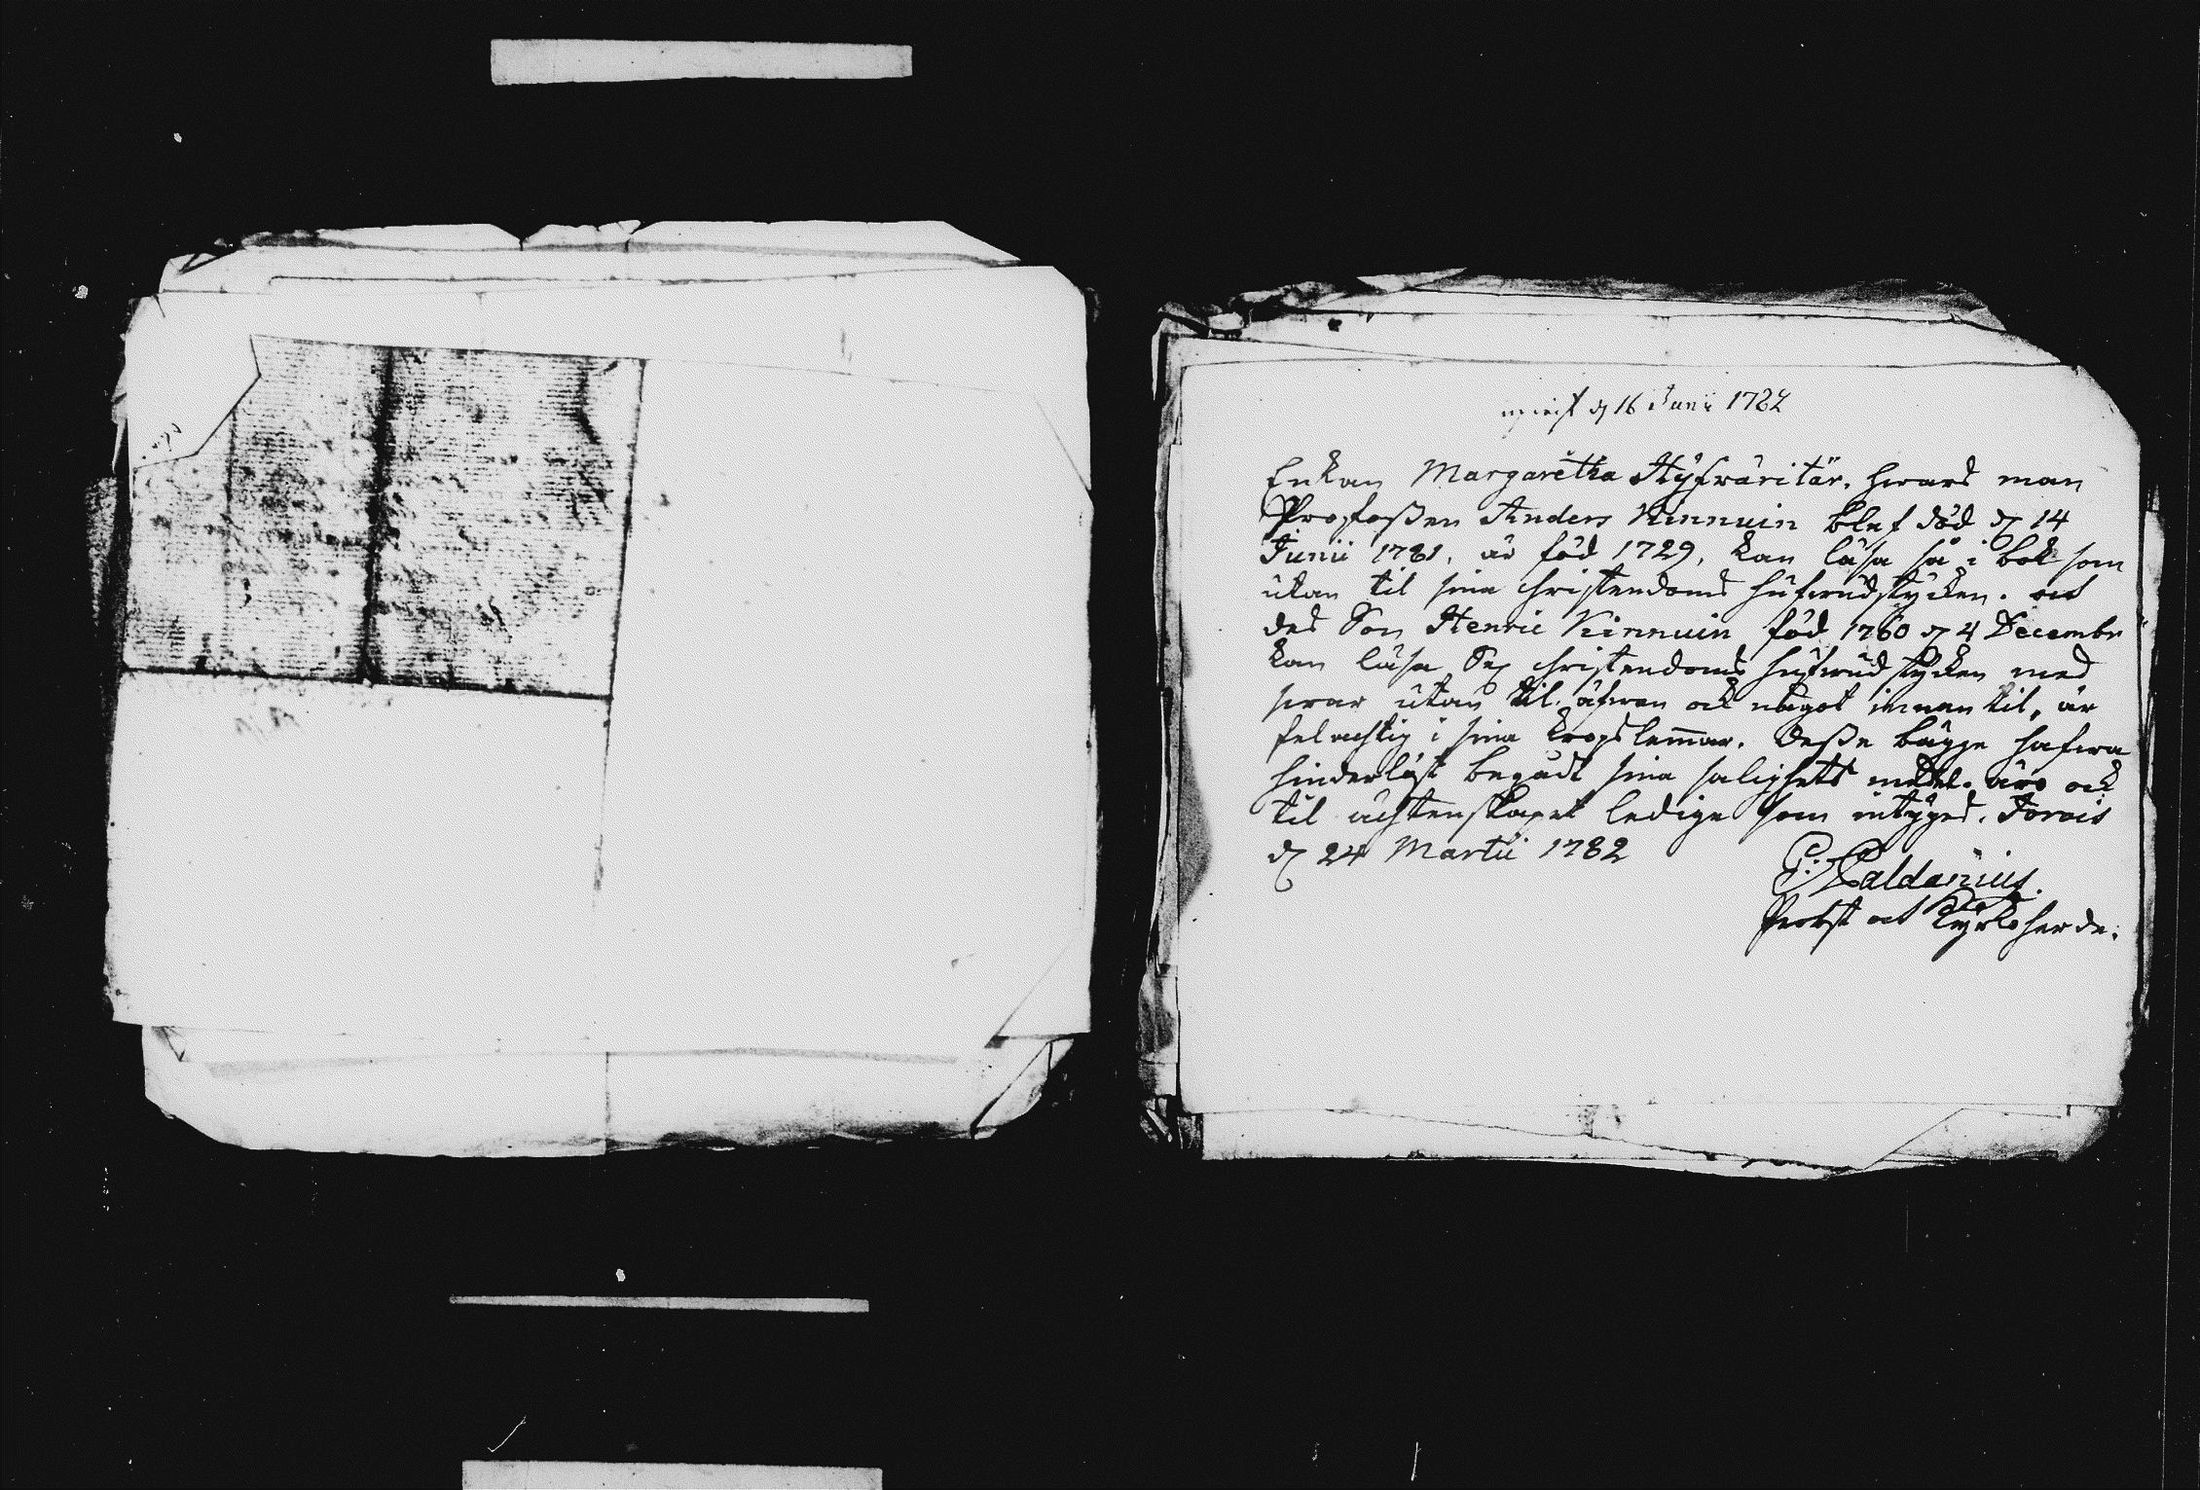 d 16 Junii 1782
Enkan Margaretha Styfwäritär. hwars man
Profossen Anders Kinnuin blef död d 14
Junii 1781. är född 1729, kan läsa så i bok som
utan til sina christendoms hufwudstycken. och
des Son Henric Kinnuin född 1760 d 4 Decembr
kan läsa Sex christendoms hufwudstycken med
swar utan til. äfwen och något innan til, är
felachtig i sina kropslemmar. Desse bägge hafwa
hinderlöst begådt sina salighets medel. äro ock
til ächtenskapet ledige som intyges. Jorois
d 24 Martii 1782
Paldanius.
Probst och Kyrkoherde.